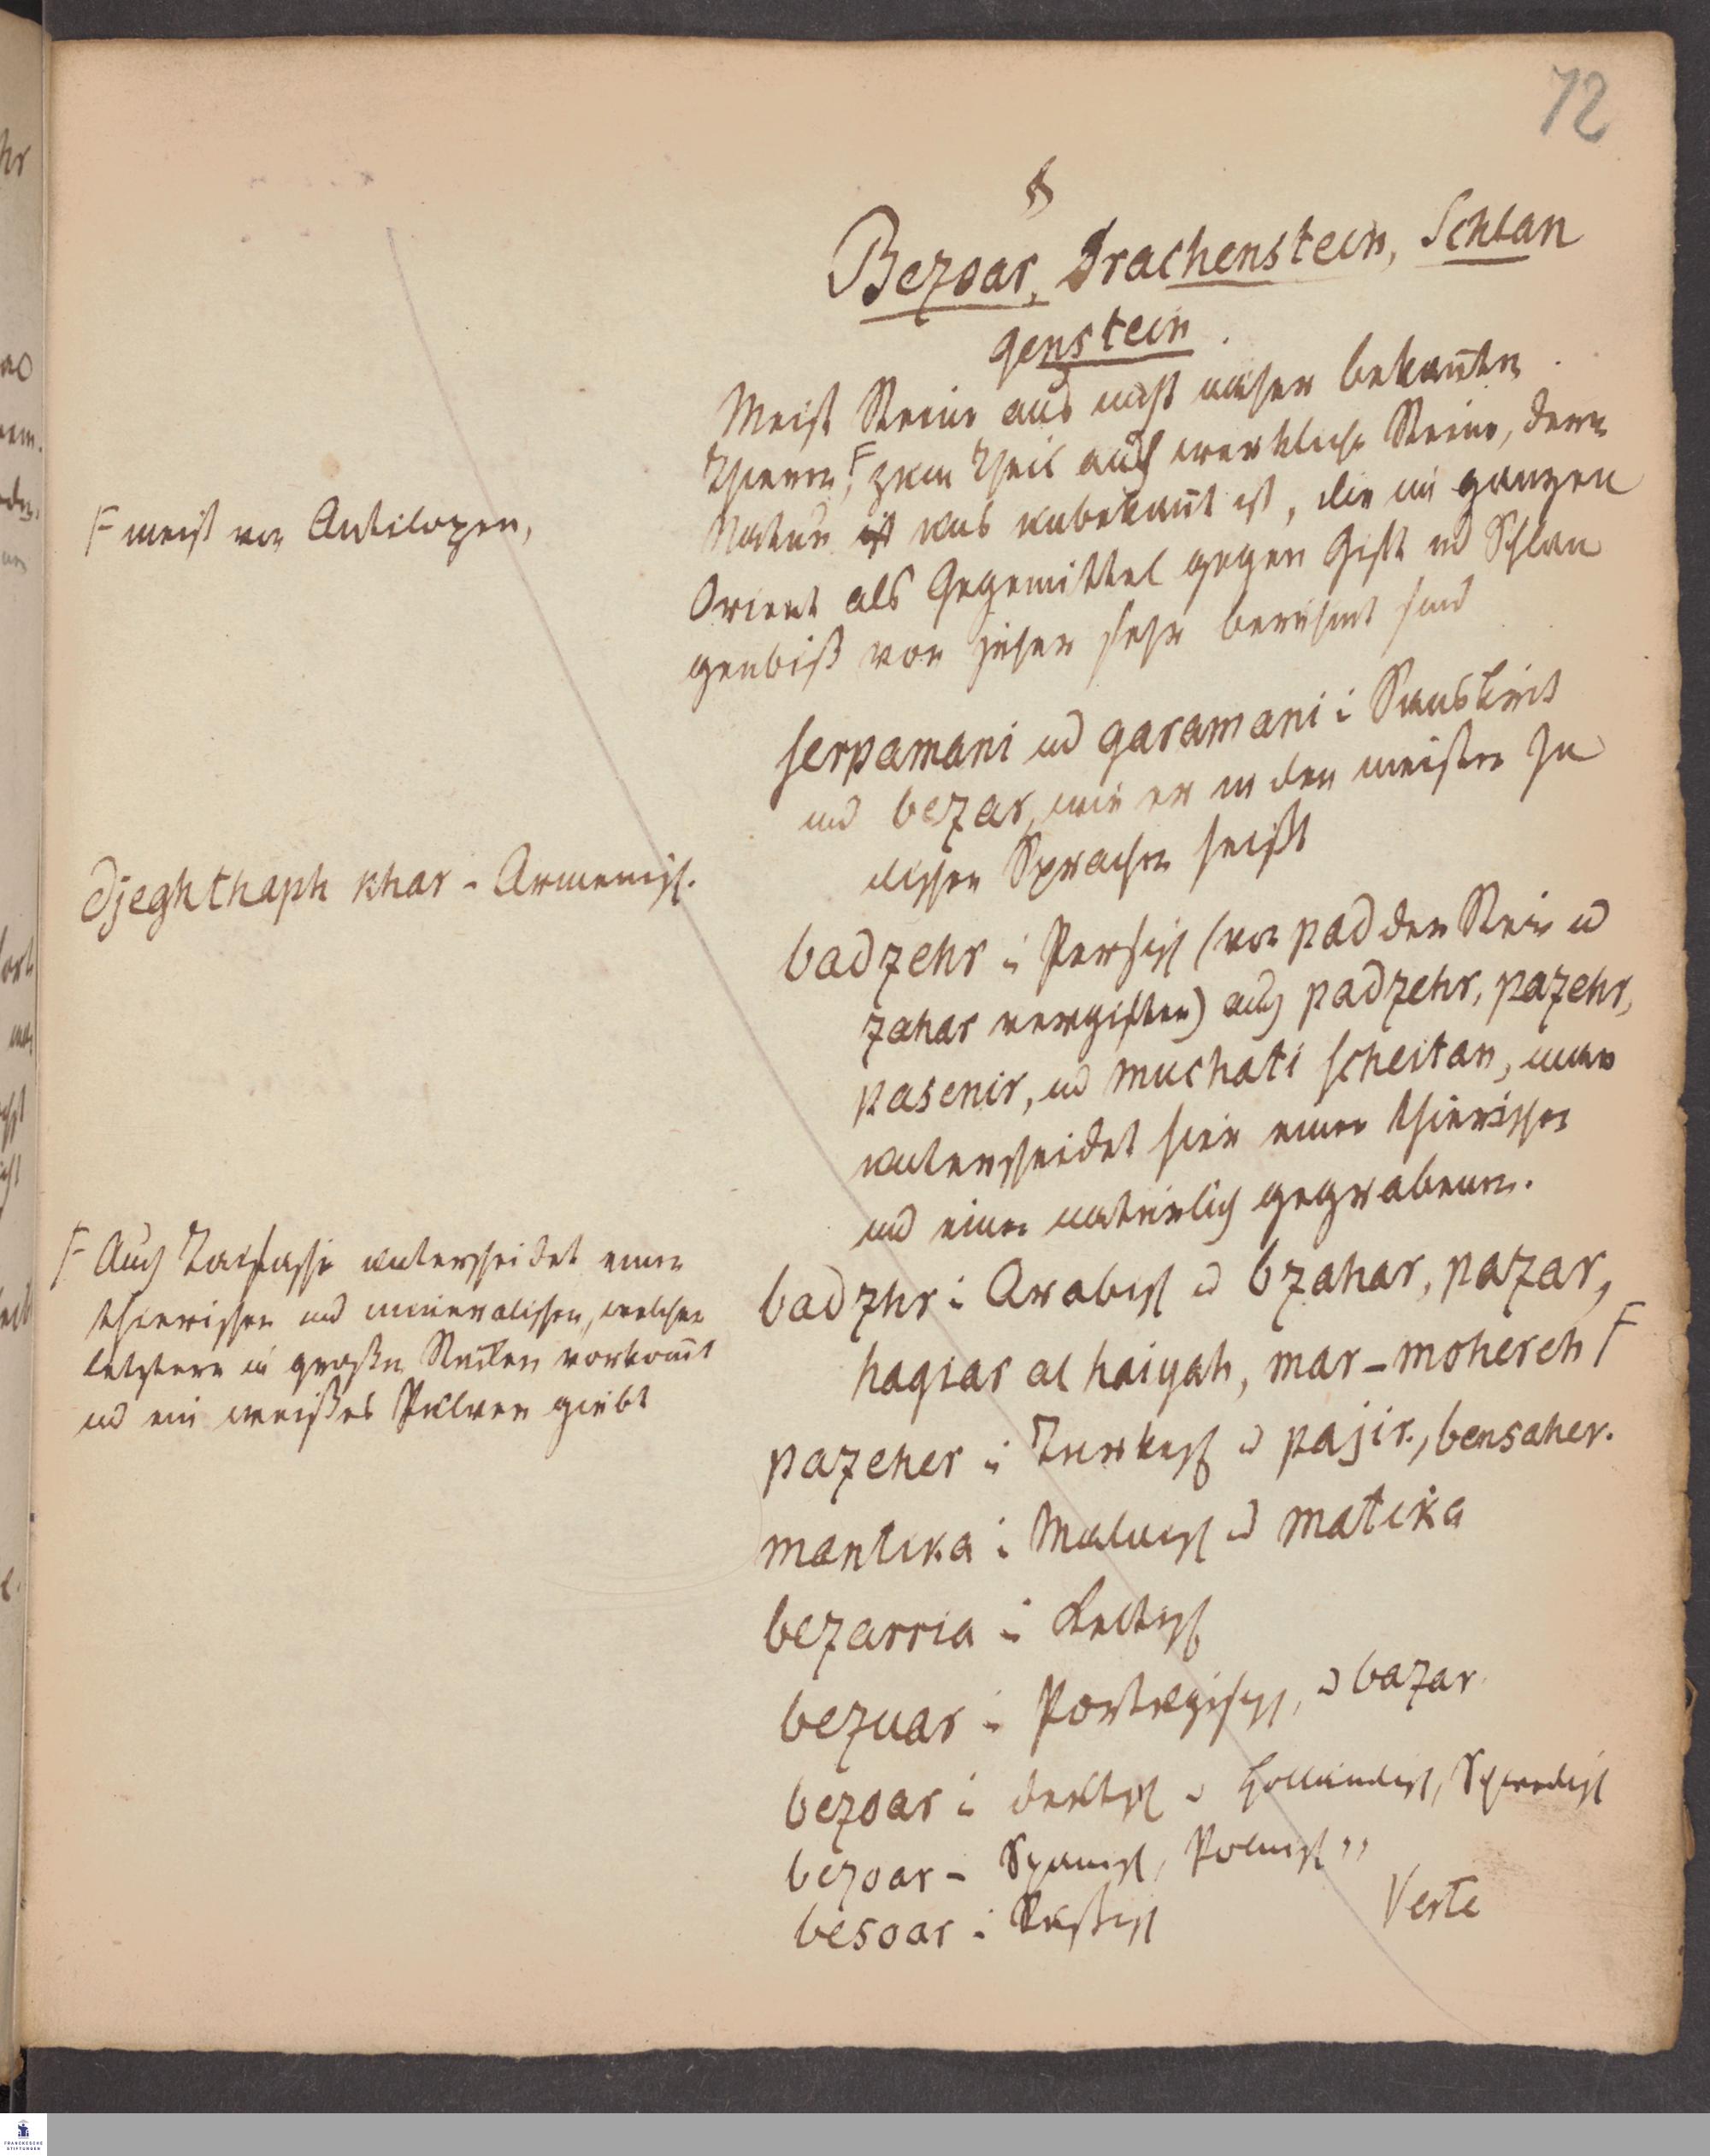 72
§
Bezoar, Drachenstein, Schlan
genstein.
Meist Steine aus nicht näher bekannten
Thieren, F zum Theil auch wirkliche Steine, deren
Natur uns unbekannt ist, die im ganzen
Orient als Gegenmittel gegen Gift und Schlan
genbiß von jeher sehr berühmt sind
F meist von Antilopen,
serpamani und garamani i Sanskrit
und bezar, wie er in den meisten In
dischen Sprachen heißt
Djeghthaph khar - Armenisch.
badzehr i Persisch (von pad der Stein u
zahar vergiften) auch padzehr, pazehr,
pasenir, und muchati scheitan, man
unterscheidet hier einen thierischen
und einen natürlich gegrabenen.
badzhr i Arabisch u bzahar, pazar,
hagiar al haiyah, mar-mohereh F
F Auch Taifaschi unterscheidet einen
thierischen und mineralischen, welcher
letztere in großen Stücken vorkommt
und ein weißes Pulver giebt
pazeher i Türkisch u pajir., bensaher.
mantika i Malaiisch u matika
bezarria i
bezuar i Portugisisch, u bazar
bezoar i deutsch u Holländisch, Schwedisch
bezoar - Spanisch, Polnisch "
besoar i Russisch
Verte
FRANCKESCHE
STIFTUNGEN